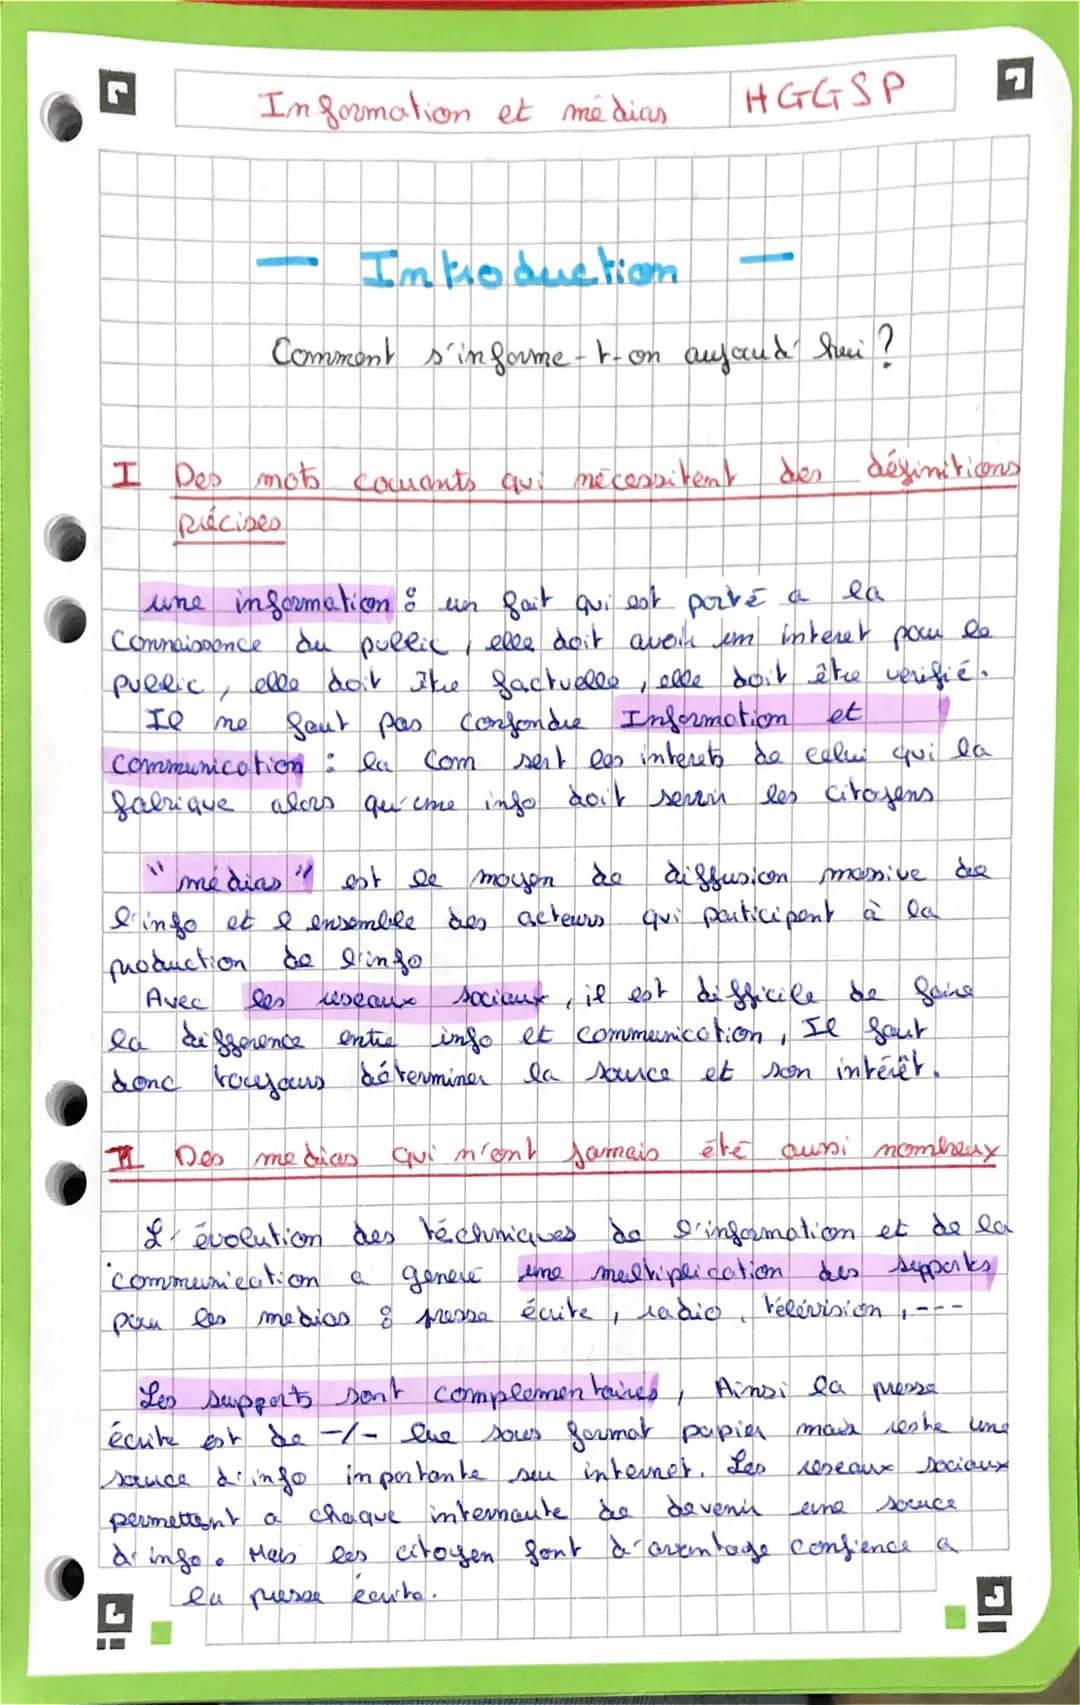 Information et médias
HGGSP
— Introduction —
Comment s'informe-t-on aujourd'hui ?
I Des mots courants qui nécessitent des définitions
précises
une information : un fait qui est porté a la
connaissance du public, elle doit avoir un interet pour le
public, elle doit être factuelle, elle doit être verifié.
Il ne faut pas confondre Information et
communication : la com sert les interets de celui qui la
fabrique alors qu'une info doit servir les citoyens
"médias" est le moyen de diffusion massive de
l'info et l'ensemble des acteurs qui participent à la
production de l'info
Avec les reseaux sociaux, il est difficile de faire
la difference entre info et communication, Il faut
donc toujours déterminer la source et son intérêt.
II Des medias qui n'ont jamais été aussi nombreux
L'évolution des téchniques de l'information et de la
communication a generé une multiplication des supports
pour les medias : presse écrite, radio, télévision, ---
Les supports sont complementaires, Ainsi la presse
écrite est de -/- lue sous format papier mais reste une
source d'info importante sur internet. Les reseaux sociaux
permettent a chaque internaute de devenir une source
d'info. Mais les citoyen font d'avantage confience a
la presse écrite.